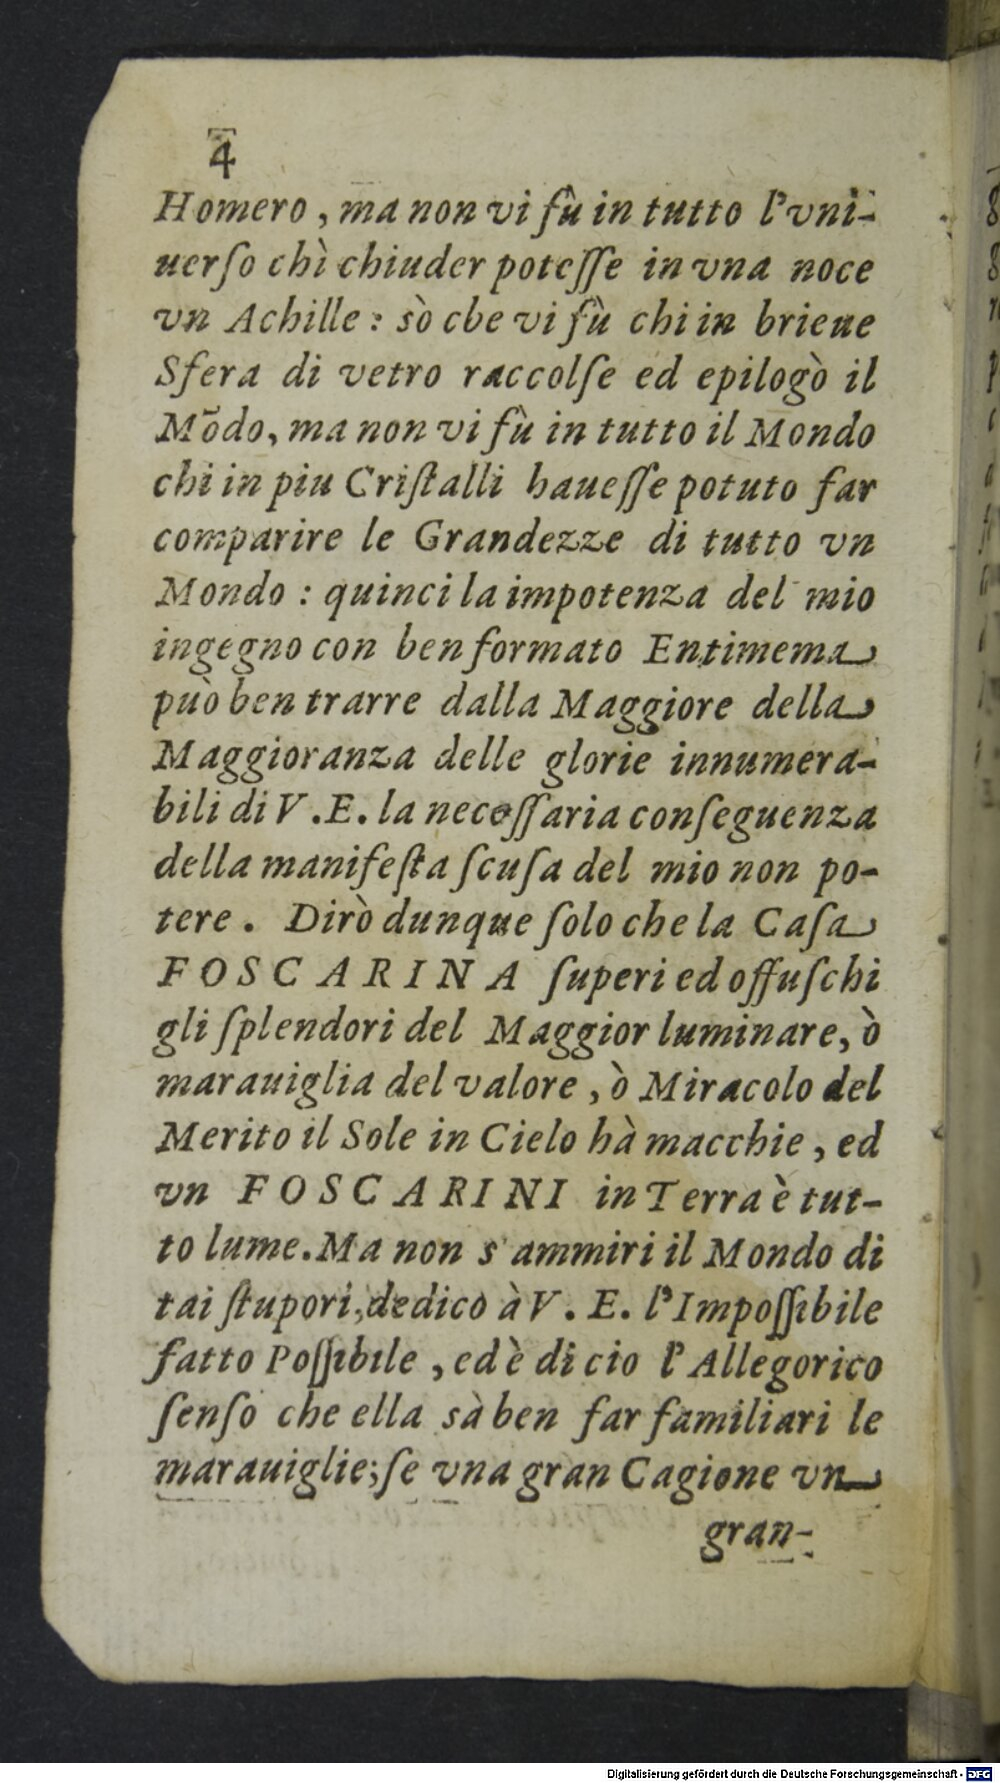 4
Homero, ma non vi fù in tutto l'vni-
uerſo chì chiuder poteſſe in vna noce
vn Achille: sò che vi fù chi in brieue
Sfera di vetro raccolſe ed epilogò il
Mōdo, ma non vi fù in tutto il Mondo
chi in piu Criſtalli haueſſe potuto far
comparire le Grandezze di tutto vn
Mondo: quinci la impotenza del mio
ingegno con ben formato Entimema
può ben trarre dalla Maggiore della
Maggioranza delle glorie innumera-
bili di V.E. la neceſſaria conſeguenza
della manifeſta ſcuſa del mio non po-
tere. Dirò dunque ſolo che la Caſa
FOSCARINA ſuperi ed offuſchi
gli ſplendori del Maggior luminare, ò
marauiglia del valore, ò Miracolo del
Merito il Sole in Cielo hà macchie, ed
vn FOSCARINI in Terra è tut-
to lume. Ma non s'ammiri il Mondo di
tai ſtupori, dedico à V. E. l'Impoſſibile
fatto Poſſibile, ed è di cio l'Allegorico
ſenſo che ella sà ben far familiari le
marauiglie; ſe vna gran Cagione vn
gran-
Digitalisierung gefördert durch die Deutsche Forschungsgemeinschaft - DFG